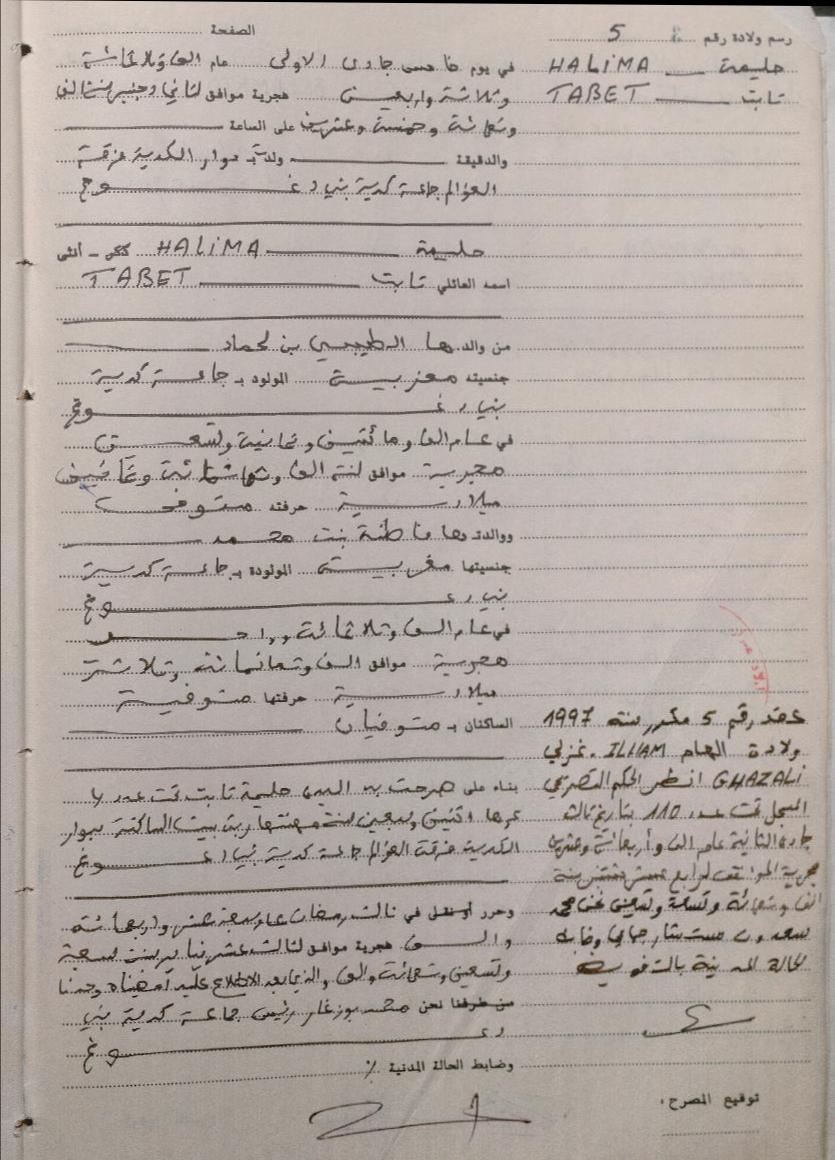 الصفحة
رسم ولادة رقم 5
حليمة HALIMA
ثابت TABET
في يوم خامس جمادى الاولى عام الف وثلاثمائة
وثلاثة واربعين هجرية موافق لثاني دجنبر سنة الف
وتسعمائة وخمسة وعشرين على الساعة
والدقيقة ولدت بـ دوار الكدية فرقة
العوالم جماعة كدية بني دغوغ
حليمة HALIMA ذكر - أنثى
اسمه العائلي ثابت TABET
من والدها الطيبي بن لحماد
جنسيته مغربية المولود بـ جماعة كدية
بني دغوغ
في عام الف ومائتين وثمانية وتسعين
هجرية موافق لسنة الف وثمانمائة وثمانين
ميلادية حرفته متوفى
ووالدتها فاطنة بنت محمد
جنسيتها مغربية المولودة بـ جماعة كدية
بني دغوغ
في عام الف وثلاثمائة وواحد
هجرية موافق الف وثمانمائة وثلاثة
ميلادية حرفتها متوفية
الساكنان بـ متوفيان
بناء على ما صرحت به السيدة حليمة ثابت تحت عدد
عمرها اثنين وسبعين سنة مهنتها ربة بيت الساكنة بدوار
الكدية فرقة العوالم جماعة كدية بني دغوغ
وحرر أو نقل في ثالث رمضان عام سبعة عشر واربعمائة
والف هجرية موافق لثالث عشر يناير سنة سبعة
وتسعين وتسعمائة والف والذي بعد الاطلاع عليه أمضيناه وحدنا
من طرفنا نحن محمد بوزغار رئيس جماعة كدية بني
دغوغ
وضابط الحالة المدنية ٪
عقد رقم 5 مكرر سنة 1997
ولادة الهام ILHAM غزلي
GHAZALI انظر الحكم التصريحي
المسجل تحت عدد 110 بتاريخ ثالث
جمادى الثانية عام الف وأربعمائة وعشرين
هجرية الموافق لرابع عشر شتنبر سنة
الف وتسعمائة وتسعة وتسعين نحن محمد
سعدون مستشار جماعي وضابط
الحالة المدنية بالتفويض
توقيع المصرح،